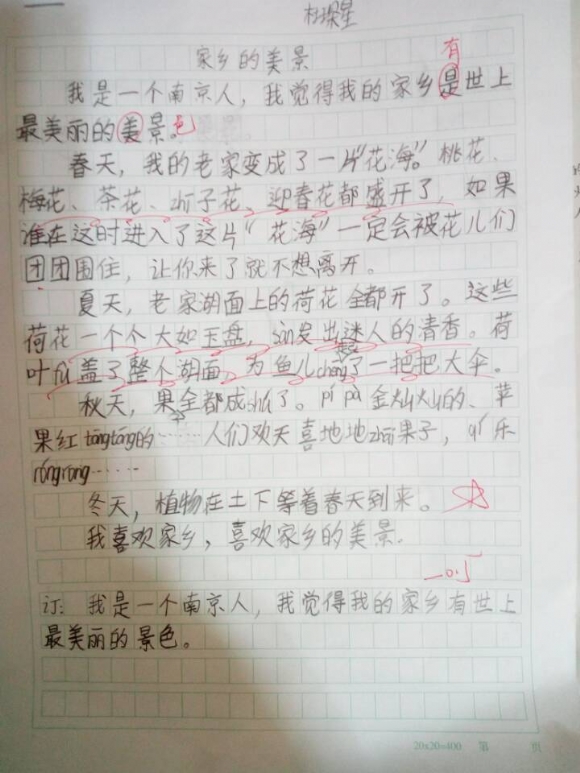 家乡的美景
有
我是一个南京人，我觉得我的家乡是世上
最美丽的美景。色
春天，我的老家变成了一片“花海”。桃花、
梅花、茶花、zhī子花、迎春花都盛开了，如果
谁在这时进入了这片“花海”一定会被花儿们
团团围住，让你来了就不想离开。
夏天，老家湖面上的荷花全都开了。这些
荷花一个个大如玉盘，sàn发出迷人的清香。荷
叶fù盖了整个湖面，为鱼儿chēng了一把把大伞。
秋天，果全都成shú了。pí pà金灿灿的、苹
果红tōngtōng的……人们欢天喜地地zhāi果子，qí乐
róngróng……
冬天，植物在土下等着春天到来。
我喜欢家乡，喜欢家乡的美景。
订：我是一个南京人，我觉得我的家乡有世上
最美丽的景色。
20×20=400 第 页